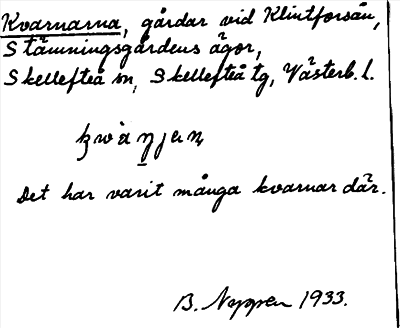 Kvarnarna, gårdar vid Klintforsån,
Stämningsgårdens ägor,
Skellefteå sn, Skellefteå tg, Västerb. l.
Det har varit många kvarnar där.
B. 1933.